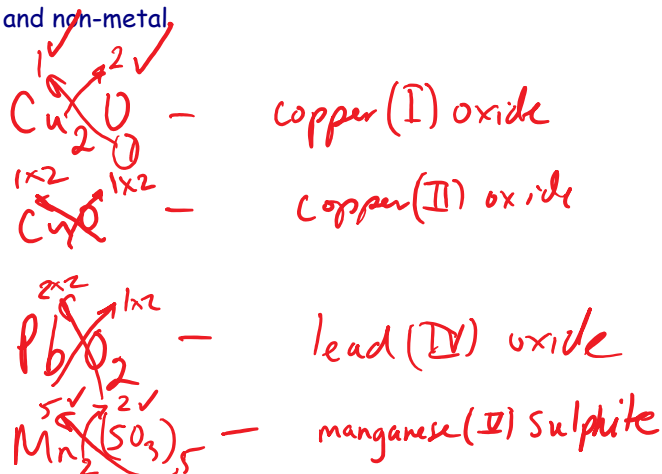 and non-metal
1 2
Cu₂O – copper (I) oxide
1
1x2 1x2
CuO – copper (II) oxide
2x2 1x2
PbO₂ – lead (IV) oxide
5 2
Mn₂(SO₃)₅ – manganese (V) sulphite